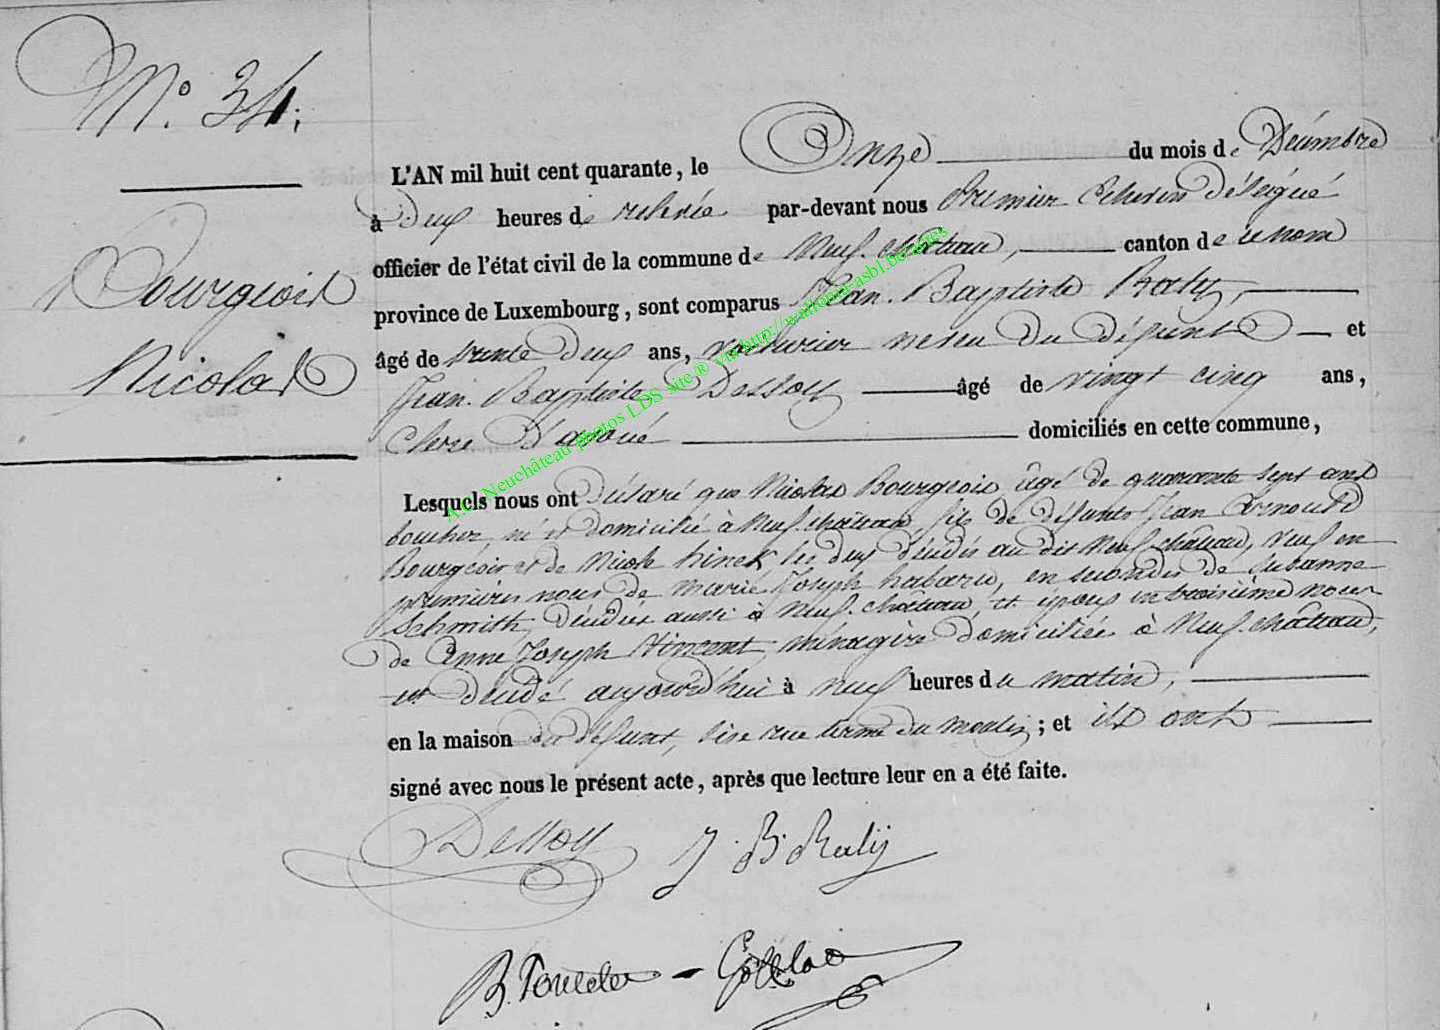 N.° 34.
Bourgeois
Nicolas
L'AN mil huit cent quarante, le Onze du mois de Décembre
à deux heures de relevée par-devant nous Premier Echevin délégué
officier de l'état civil de la commune de Neuf-château, canton de ce nom
province de Luxembourg, sont comparus Jean-Baptiste Raly,
âgé de trente deux ans, voiturier neveu du défunt et
Jean-Baptiste Dessoy âgé de vingt cinq ans,
Clerc d'avoué domiciliés en cette commune,
Lesquels nous ont déclaré que Nicolas Bourgeois âgé de quarante sept ans
boucher, né et domicilié à Neuf-château fils de défunts Jean Arnould
Bourgeois et de Nicole les deux décédés au dit Neufchâteau, veuf en
premières noces de Marie Joseph habaru, en secondes de Subanne
Schmith, décédées aussi à Neuf-château, et époux en troisième noces
de Anne Joseph Vincent, ménagère domiciliée à Neuf-château,
est décédé aujourd'hui à neuf heures du matin,
en la maison du défunt, sise rue terme du moulin; et ils ont
signé avec nous le présent acte, après que lecture leur en a été faite.
Dessoy J. B. Raly
A.C. Neuchâteau photos LDS site ® via http://wallonia-asbl.be/actes